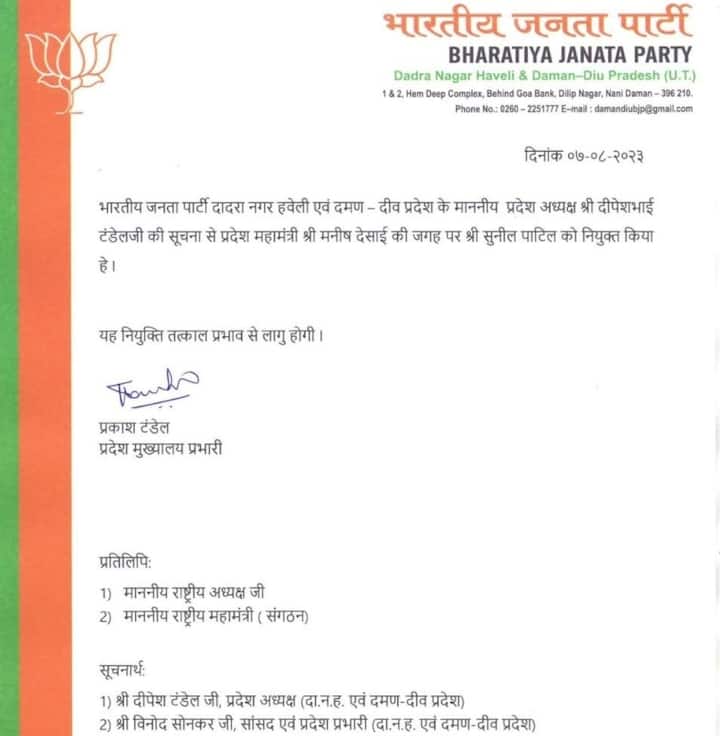 भारतीय जनता पार्टी
BHARATIYA JANATA PARTY
Dadra Nagar Haveli & Daman–Diu Pradesh (U.T.)
1 & 2, Hem Deep Complex, Behind Goa Bank, Dilip Nagar, Nani Daman – 396 210.
Phone No.: 0260 – 2251777 E–mail : damandiubjp@gmail.com
दिनांक ०७-०८-२०२३
भारतीय जनता पार्टी दादरा नगर हवेली एवं दमण – दीव प्रदेश के माननीय प्रदेश अध्यक्ष श्री दीपेशभाई
टंडेलजी की सूचना से प्रदेश महामंत्री श्री मनीष देसाई की जगह पर श्री सुनील पाटिल को नियुक्त किया
हे।
यह नियुक्ति तत्काल प्रभाव से लागु होगी।
प्रकाश टंडेल
प्रदेश मुख्यालय प्रभारी
प्रतिलिपि:
1) माननीय राष्ट्रीय अध्यक्ष जी
2) माननीय राष्ट्रीय महामंत्री ( संगठन)
सूचनार्थ:
1) श्री दीपेश टंडेल जी, प्रदेश अध्यक्ष (दा.न.ह. एवं दमण-दीव प्रदेश)
2) श्री विनोद सोनकर जी, सांसद एवं प्रदेश प्रभारी (दा.न.ह. एवं दमण-दीव प्रदेश)